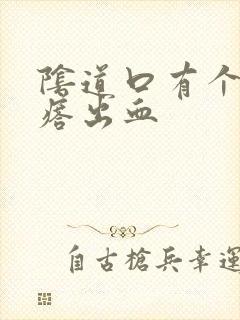 陰道口有个
痞出血
自古槍兵幸運